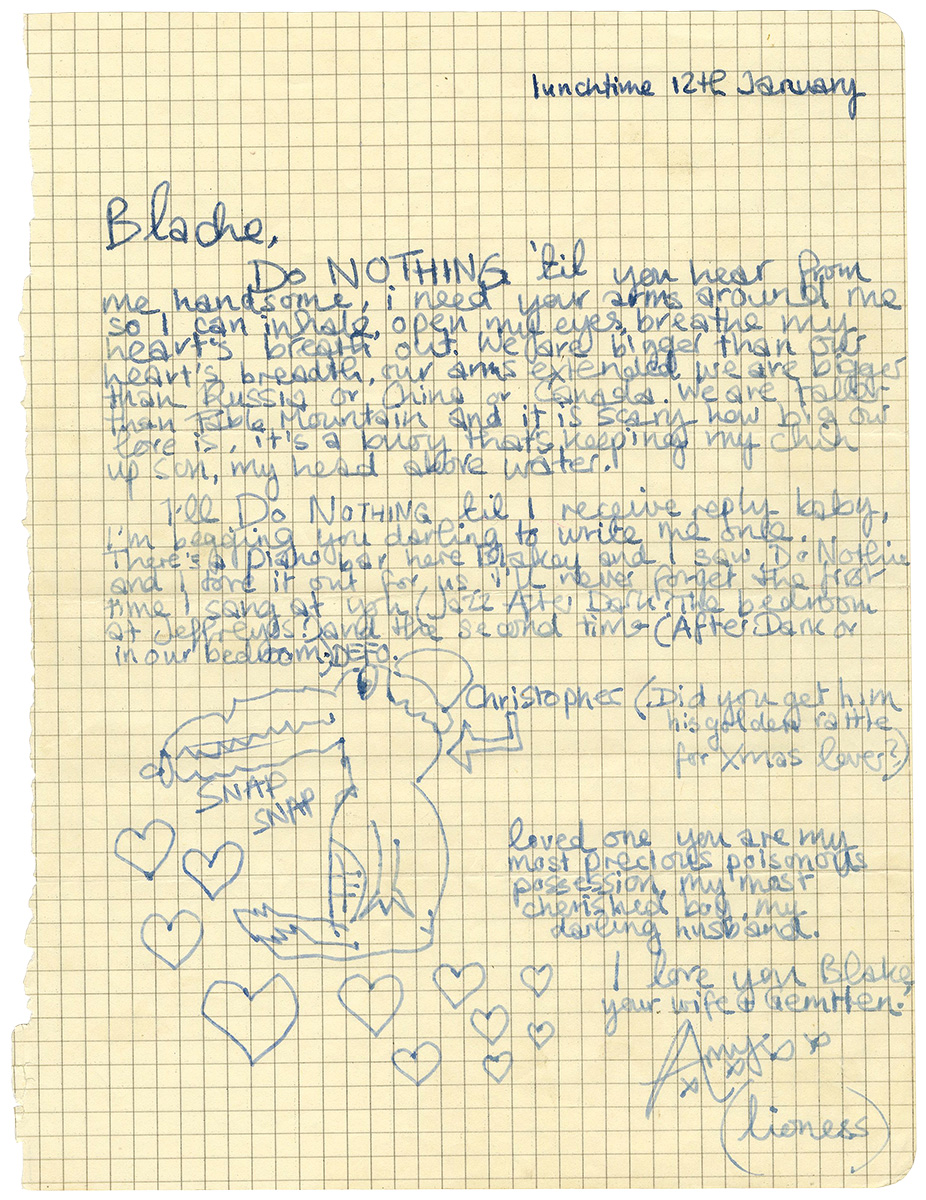 lunchtime 12th January
Blache,
Do NOTHING 'til you hear from
me handsome, i need your arms around me
so I can inhale, open my eyes, breathe my
heart's breath out. We are binger than our
heart's breadth, our arms extended. we are bigger
than Russia or China or Canada. We are taller
than Table Mountain and it is scary how big our
love is, it's a buoy that's keeping my chin
up son, my head above water.
I'll Do NOTHING til I receive reply baby,
I'm begging you darling to write me once.
There's a piano bar here Blakey and I saw Do Nothin
and I tore it out for us. i'll never forget the first
time I sang at you (Jazz After Dark? The bedroom
at Jeffreys?) and the second time (After Dark or
in our bedroom.) DEFO.
Christopher (Did you get him
his golden rattle
for Xmas lover?)
SNAP
SNAP
loved one you are my
most precious poisonous
possession, my most
cherished boy, my
darling husband.
I love you Blake,
your wife &
Amy xo x
x x
(lioness)